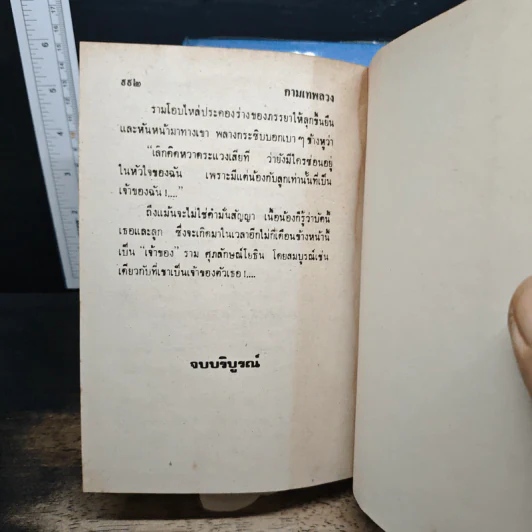 ๕๕๒ กามเทพลวง
รามโอบไหล่ประคองร่างของภรรยาให้ลุกขึ้นยืน
และหันหน้ามาทางเขา พลางกระซิบบอกเบา ๆ ข้างหูว่า
"เลิกคิดหวาดระแวงเสียที ว่ายังมีใครซ่อนอยู่
ในหัวใจของฉัน เพราะมีแค่น้องกับลูกเท่านั้นที่เป็น
เจ้าของฉัน !...."
ถึงแม้นจะไม่ใช่คำมั่นสัญญา เนื้อน้องก็รู้ว่าบัดนี้
เธอและลูก ซึ่งจะเกิดมาในเวลาอีกไม่กี่เดือนข้างหน้านี้
เป็น "เจ้าของ" ราม ศุภลักษณ์โยธิน โดยสมบูรณ์เช่น
เดียวกับที่เขาเป็นเจ้าของตัวเธอ !....
จบบริบูรณ์
6
5
4
3